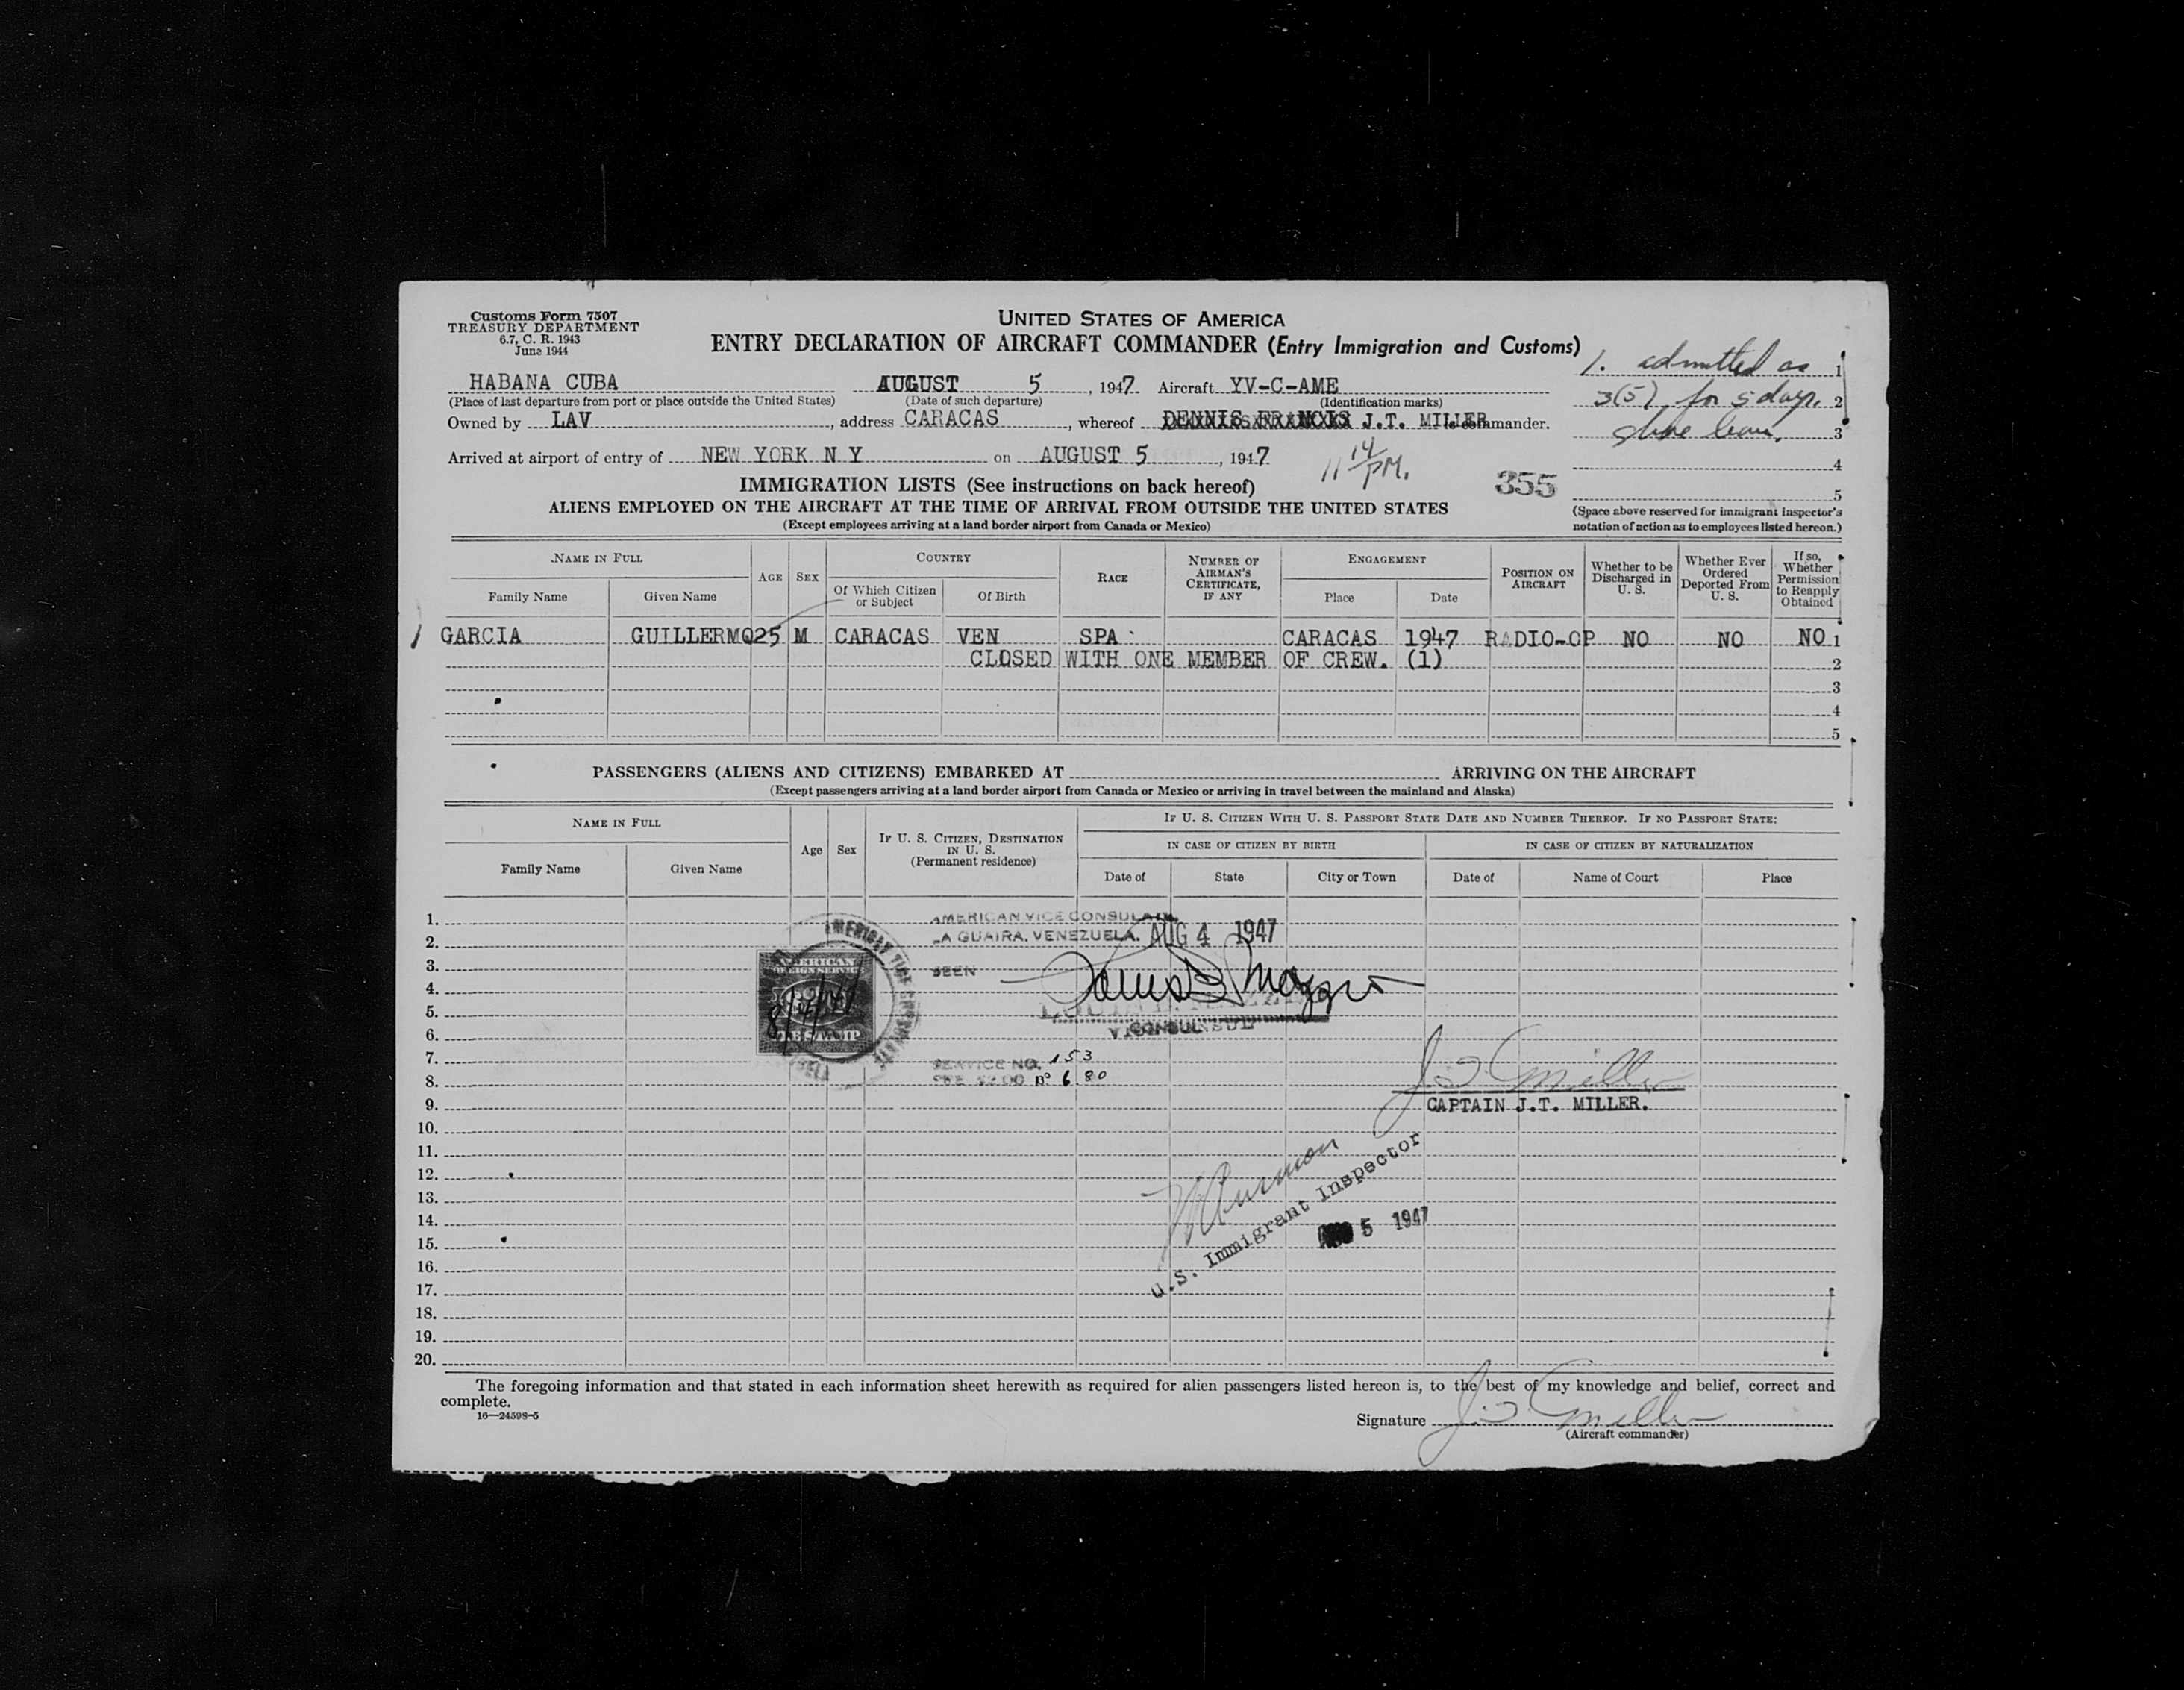 Customs Form 7507
TREASURY DEPARTMENT
6.7, C. R. 1943
June 1944
UNITED STATES OF AMERICA
ENTRY DECLARATION OF AIRCRAFT COMMANDER (Entry Immigration and Customs)
1. admitted as 1
3(5) for 5 days. 2
shore leave. 3
4
5
(Space above reserved for immigrant inspector's
notation of action as to employees listed hereon.)
HABANA CUBA AUGUST 5, 1947. Aircraft YV-C-AME
(Place of last departure from port or place outside the United States) (Date of such departure) (Identification marks)
Owned by LAV, address CARACAS, whereof DENNIS FRANCIS J.T. MILLER is commander.
Arrived at airport of entry of NEW YORK N Y on AUGUST 5, 1947.
11 14/PM.
355
IMMIGRATION LISTS (See instructions on back hereof)
ALIENS EMPLOYED ON THE AIRCRAFT AT THE TIME OF ARRIVAL FROM OUTSIDE THE UNITED STATES
(Except employees arriving at a land border airport from Canada or Mexico)
NAME IN FULL
Family Name Given Name
AGE SEX
COUNTRY
Of Which Citizen or Subject Of Birth
RACE
NUMBER OF AIRMAN'S CERTIFICATE, IF ANY
ENGAGEMENT
Place Date
POSITION ON AIRCRAFT
Whether to be Discharged in U. S.
Whether Ever Ordered Deported From U. S.
If so, Whether Permission to Reapply Obtained
1 GARCIA GUILLERMO 25 M CARACAS VEN SPA CARACAS 1947 RADIO-OP NO NO NO 1
CLOSED WITH ONE MEMBER OF CREW. (1) 2
3
4
5
PASSENGERS (ALIENS AND CITIZENS) EMBARKED AT ARRIVING ON THE AIRCRAFT
(Except passengers arriving at a land border airport from Canada or Mexico or arriving in travel between the mainland and Alaska)
NAME IN FULL
Family Name Given Name
Age Sex
IF U. S. CITIZEN, DESTINATION IN U. S.
(Permanent residence)
IF U. S. CITIZEN WITH U. S. PASSPORT STATE DATE AND NUMBER THEREOF. IF NO PASSPORT STATE:
IN CASE OF CITIZEN BY BIRTH IN CASE OF CITIZEN BY NATURALIZATION
Date of State City or Town Date of Name of Court Place
1.
2.
3.
4.
5.
6.
7.
8.
9.
10.
11.
12.
13.
14.
15.
16.
17.
18.
19.
20.
AMERICAN VICE CONSULATE
LA GUAIRA, VENEZUELA. AUG 4 1947
SEEN
CONSUL
AMERICAN VICE CONSULATE
AMERICAN
FOREIGN SERVICE
FEE STAMP
SERVICE NO. 153
FEE $2.00 No 680
J T Miller
CAPTAIN J.T. MILLER.
U.S. Immigrant Inspector
AUG 5 1947
The foregoing information and that stated in each information sheet herewith as required for alien passengers listed hereon is, to the best of my knowledge and belief, correct and
complete.
16—24598-5
Signature J T Miller
(Aircraft commander)